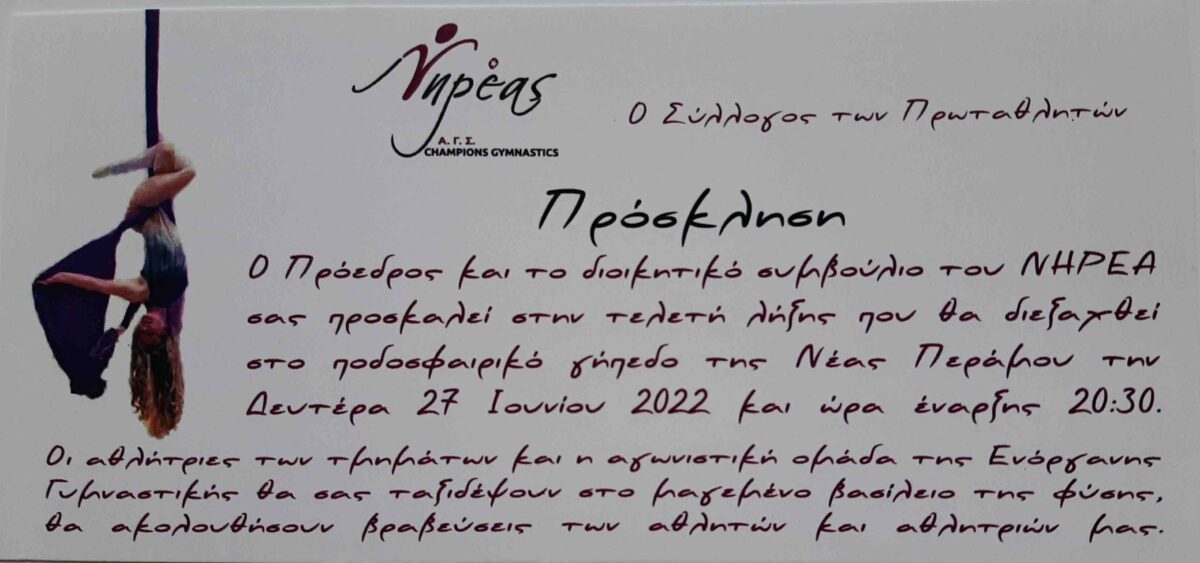 Νηρέας
Α. Γ. Σ.
CHAMPIONS GYMNASTICS
Ο Σύλλογος των Πρωταθλητών
Πρόσκληση
Ο Πρόεδρος και το διοικητικό συμβούλιο του ΝΗΡΕΑ
σας προσκαλεί στην τελετή λήξης που θα διεξαχθεί
στο ποδοσφαιρικό γήπεδο της Νέας Περάμου την
Δευτέρα 27 Ιουνίου 2022 και ώρα έναρξης 20:30.
Οι αθλήτριες των τμημάτων και η αγωνιστική ομάδα της Ενόργανης
Γυμναστικής θα σας ταξιδέψουν στο μαγεμένο βασίλειο της φύσης,
θα ακολουθήσουν βραβεύσεις των αθλητών και αθλητριών μας.